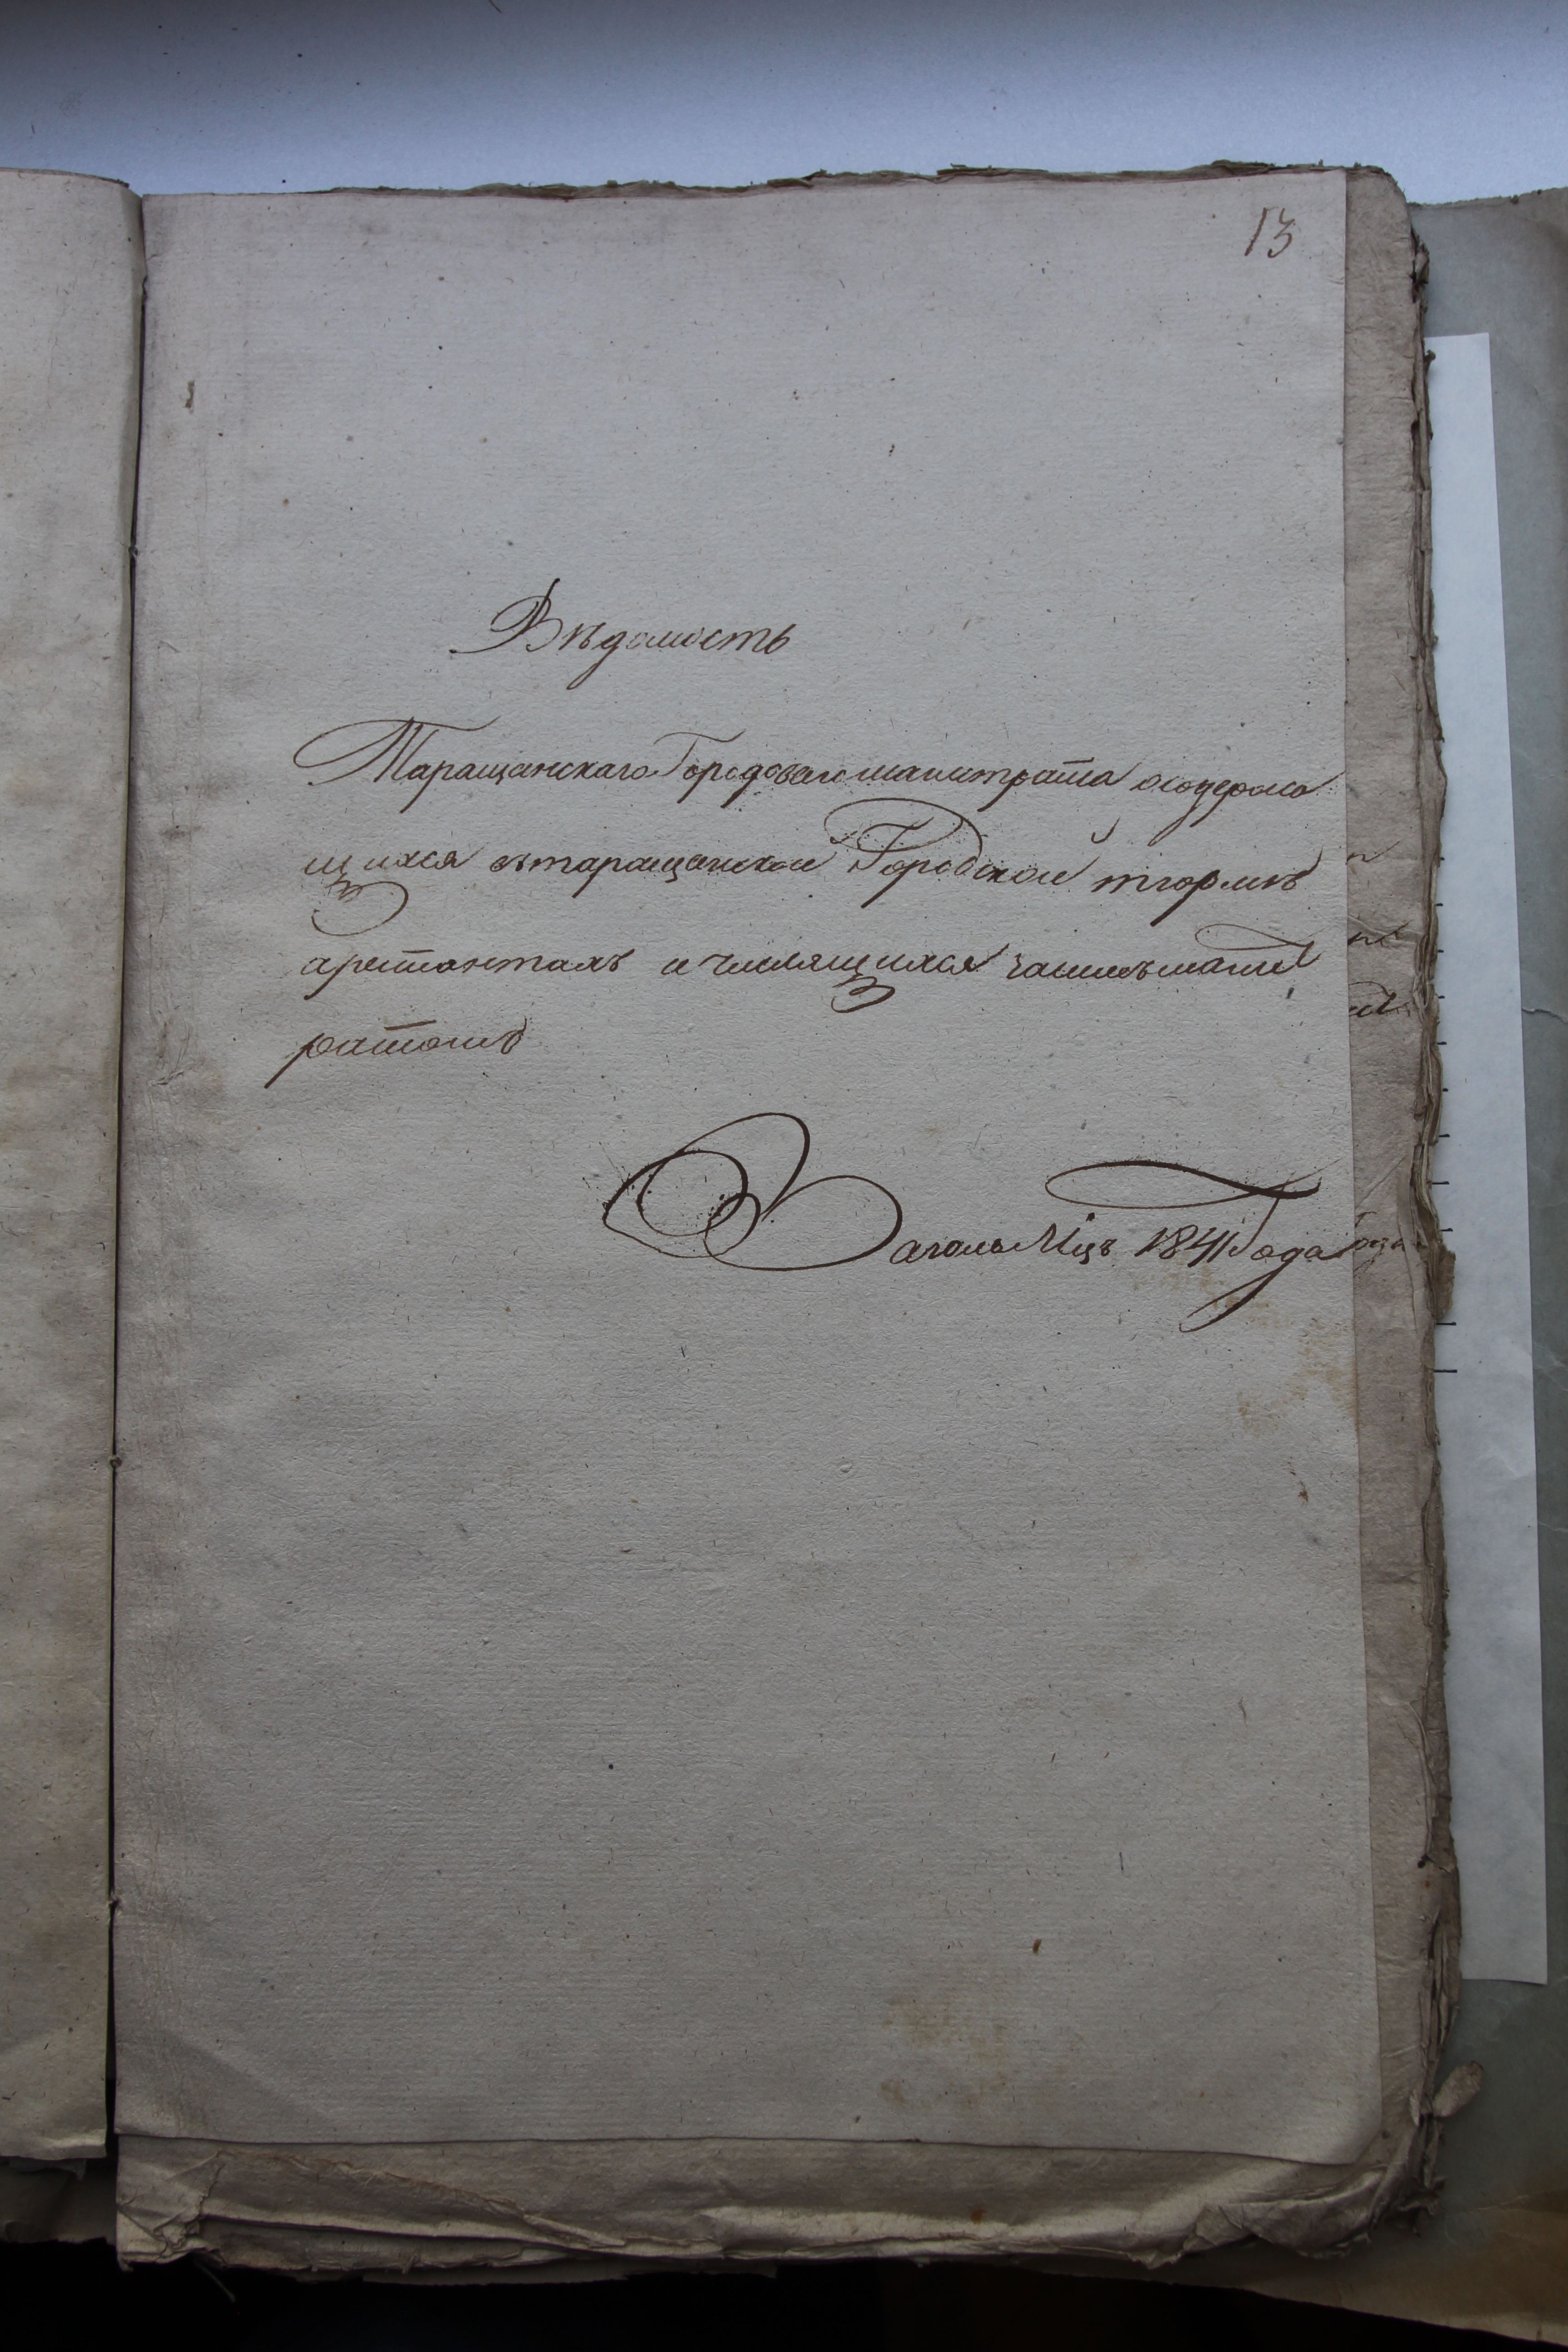 13
Вѣдомость
Таращанскаго Городоваго магистрата осодержа
щихся втаращанской Городской тюрмѣ
арестантахъ и числящихся засимъ маги
ратомъ
1841 Года